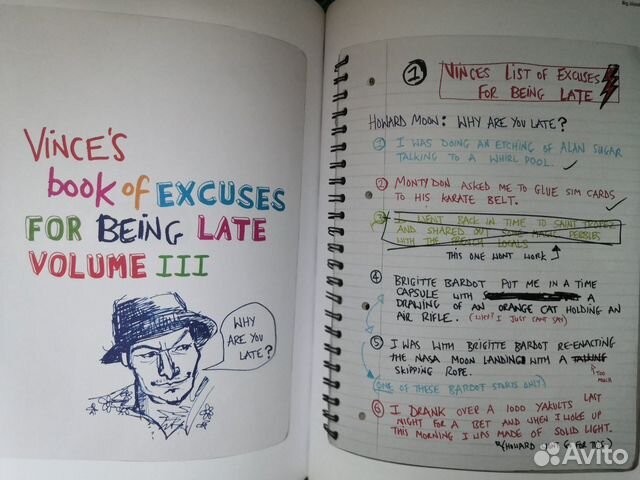 VINCE'S
book of EXCUSES
FOR BEING LATE
VOLUME III
WHY
ARE YOU
LATE?
1
VINCES LIST OF EXCUSES
FOR BEING LATE
HOWARD MOON: WHY ARE YOU LATE?
1 I WAS DOING AN ETCHING OF ALAN SUGAR
TALKING TO A WHIRL POOL.
2 MONTY DON ASKED ME TO GLUE SIM CARDS
TO HIS KARATE BELT.
3 I WENT BACK IN TIME TO SAINT
AND SHARED OUT SOME MAGIC PEBBLES
WITH THE FRENCH LOCALS
THIS ONE WONT WORK
4 BRIGITTE BARDOT PUT ME IN A TIME
CAPSULE WITH A
DRAWING OF AN ORANGE CAT HOLDING AN
AIR RIFLE. (WHY? I JUST CANT SAY)
5 I WAS WITH BRIGITTE BARDOT RE-ENACTING
THE NASA MOON LANDING WITH A TALKING
SKIPPING ROPE.
TOO
MUCH
(ONE OF THESE BARDOT STORIS ONLY)
6 I DRANK OVER A 1000 YAKULTS LAST
NIGHT FOR A BET AND WHEN I WOKE UP
THIS MORNING I WAS MADE OF SOLID LIGHT.
(HOWARD WONT G FOR THIS)
Avito